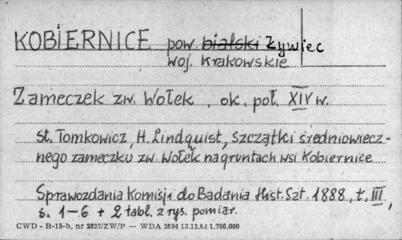 KOBIERNICE pow. bialski Żywiec
woj. Krakowskie
Zameczek zw. Wołek, ok. poł. XIV w.
St. Tomkowicz, H. Lindquist, Szczątki średniowiecz-
nego zameczku zw. Wołek na gruntach wsi Kobiernice
Sprawozdania Komisji do Badania Hist. Szt. 1888, t. III,
s. 1-6 + 2 tabl. z rys. pomiar.
CWD - B-15-b, nr 2827/ZW/P — WDA 2694 13.12.61 1.700.000